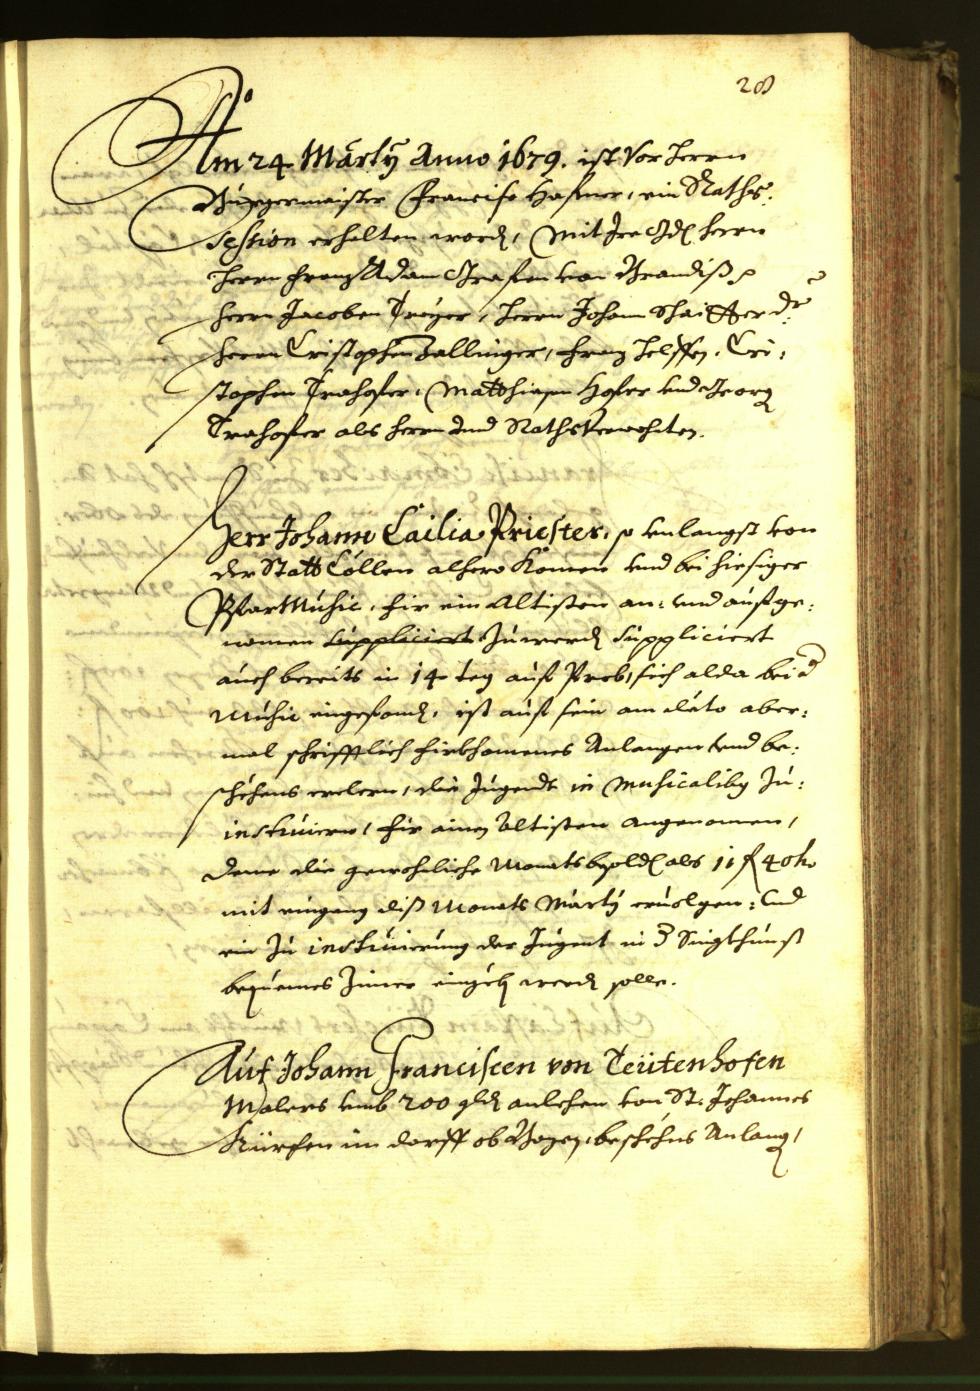 28
Am 24 Martÿ Anno 1679. ist vor Herrn
Burgermaister Francisc Hafner, ein Raths¬
Session erhalten word, Mit Ire Gd Herrn
Herrn Franz Adam Grafen von Brandiß p
Herrn Jacoben Troyer, Herrn Johann Schaitter dr
Herrn Cristophen Zallinger, Franz
Cri¬
stophen Trahofer, Matthiasen Hofer vnd Georg
Trahofer als Herrn vnd Rathsverwohnten.
Herr Johann Cailia Priester, so vnlangst von
der Statt Cöllen alhero Komen vnd bei hiesiger
Pfarr Music, für ein Altisten an: vnd aufge¬
nomen suppliciert zuwerd suppliciert
auch bereits in 14 tag auf Prob, sich alda bei d
Music eingefund, ist auf sein am dato aber¬
mal schrifftlich firkhomenes Anlangen vnd be¬
schehens erclern, die Jugendt in Musicalibg zu¬
instruiern, für ainen Altisten angenomen,
deme die gewohnliche Monats bsold als 11 f 40 k
mit eingang diß Monats Martÿ ervolgen: vnd
ein zu instruierung der Jugent in d Singkhunst
bequemes Zimer eingeb werd solle.
Auf Johann Franciscen von Teütenhofen
Malers vmb 200 gld anlehen von St: Johannes
Kürchen im dorff ob Bozen, beschehns Anlang,